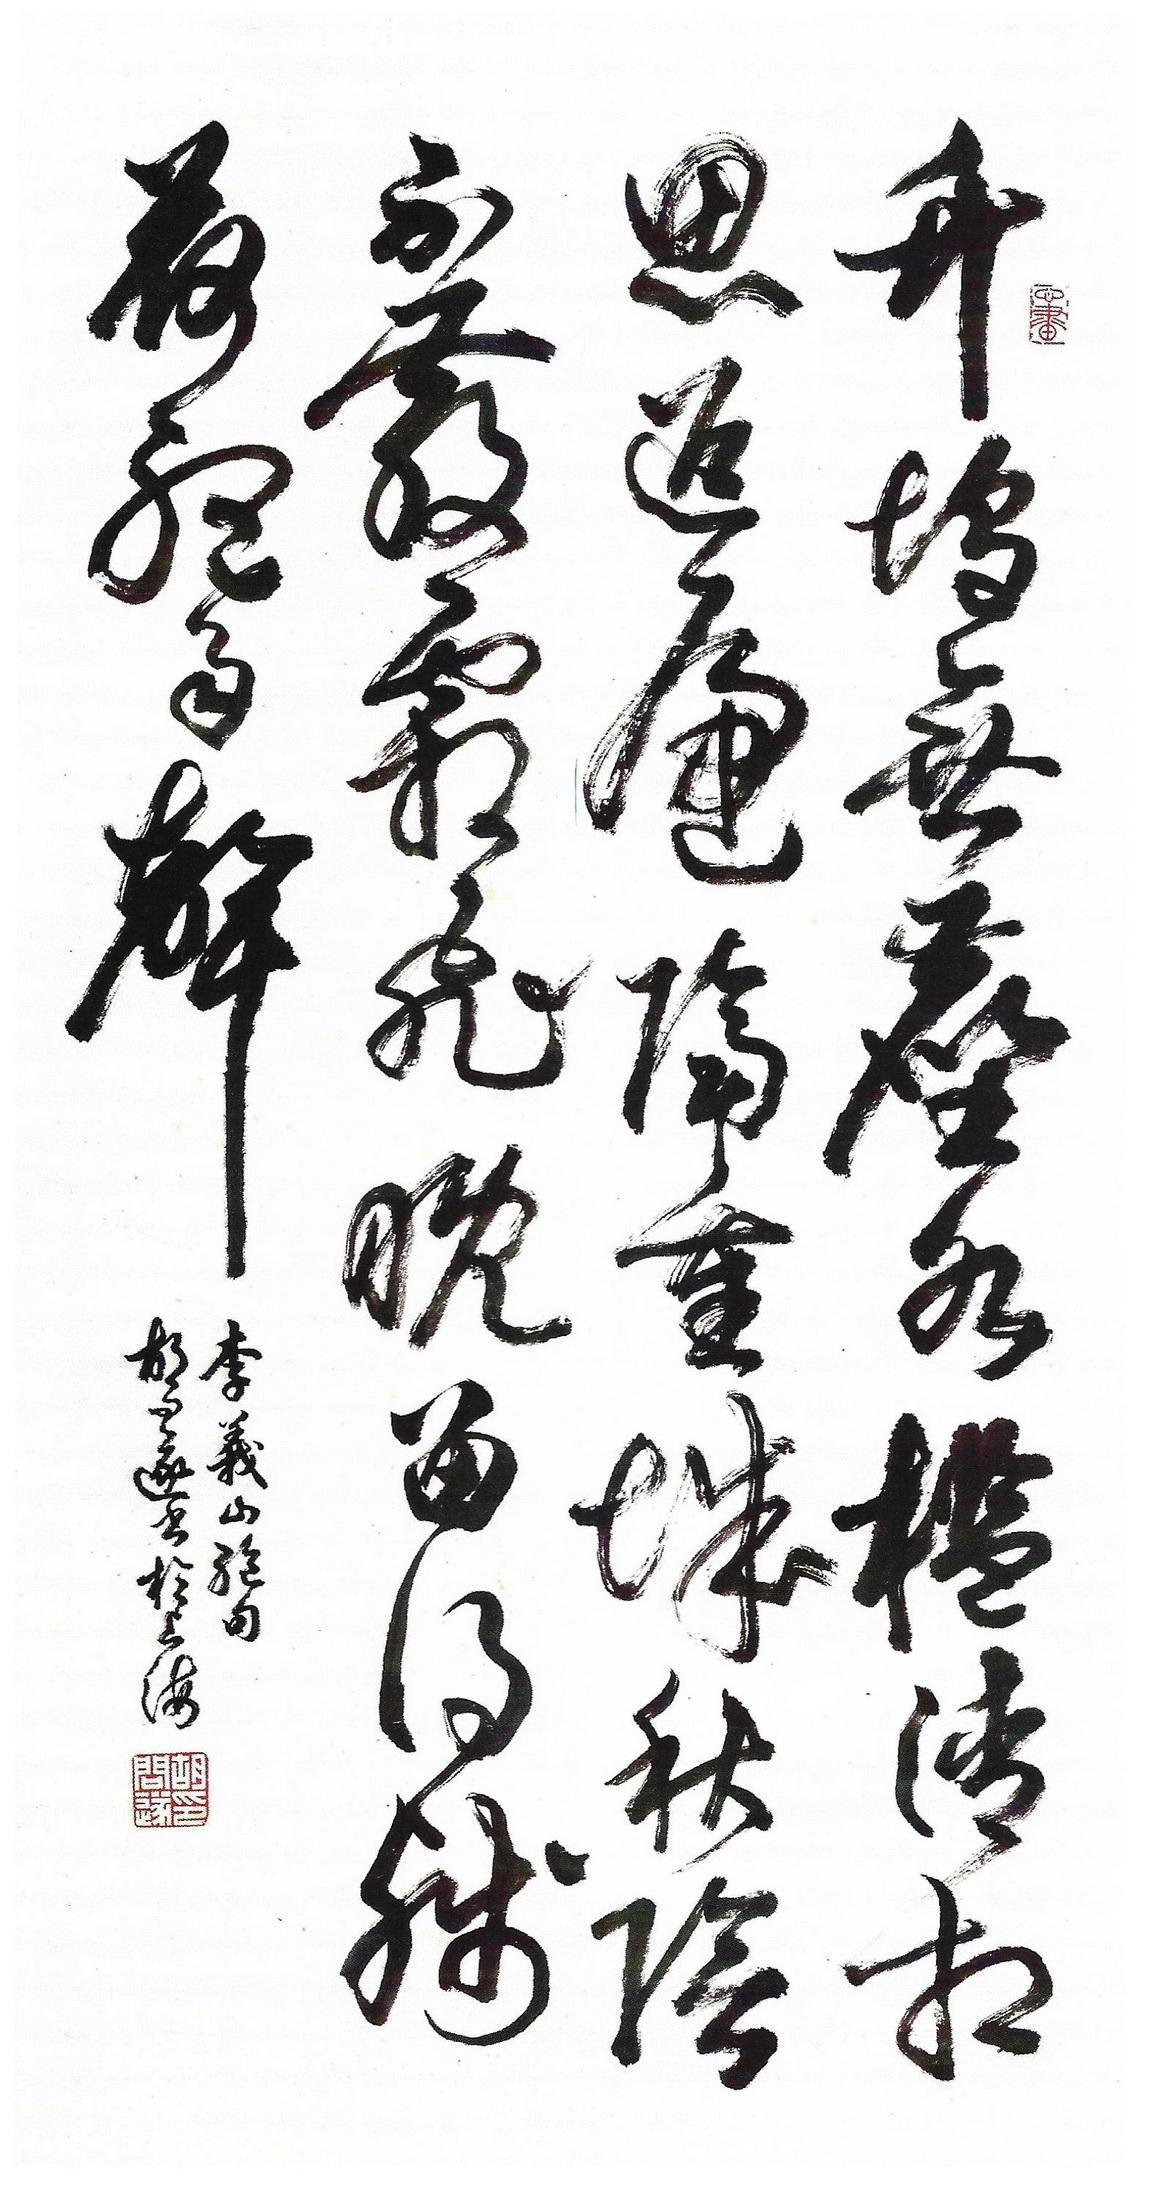 竹塢無塵水檻清相
思迢遞隔重城秋陰
不散霜飛晚留得殘
荷聽雨聲
李義山絕句
胡問遂書於上海
胡印問遂
心畫